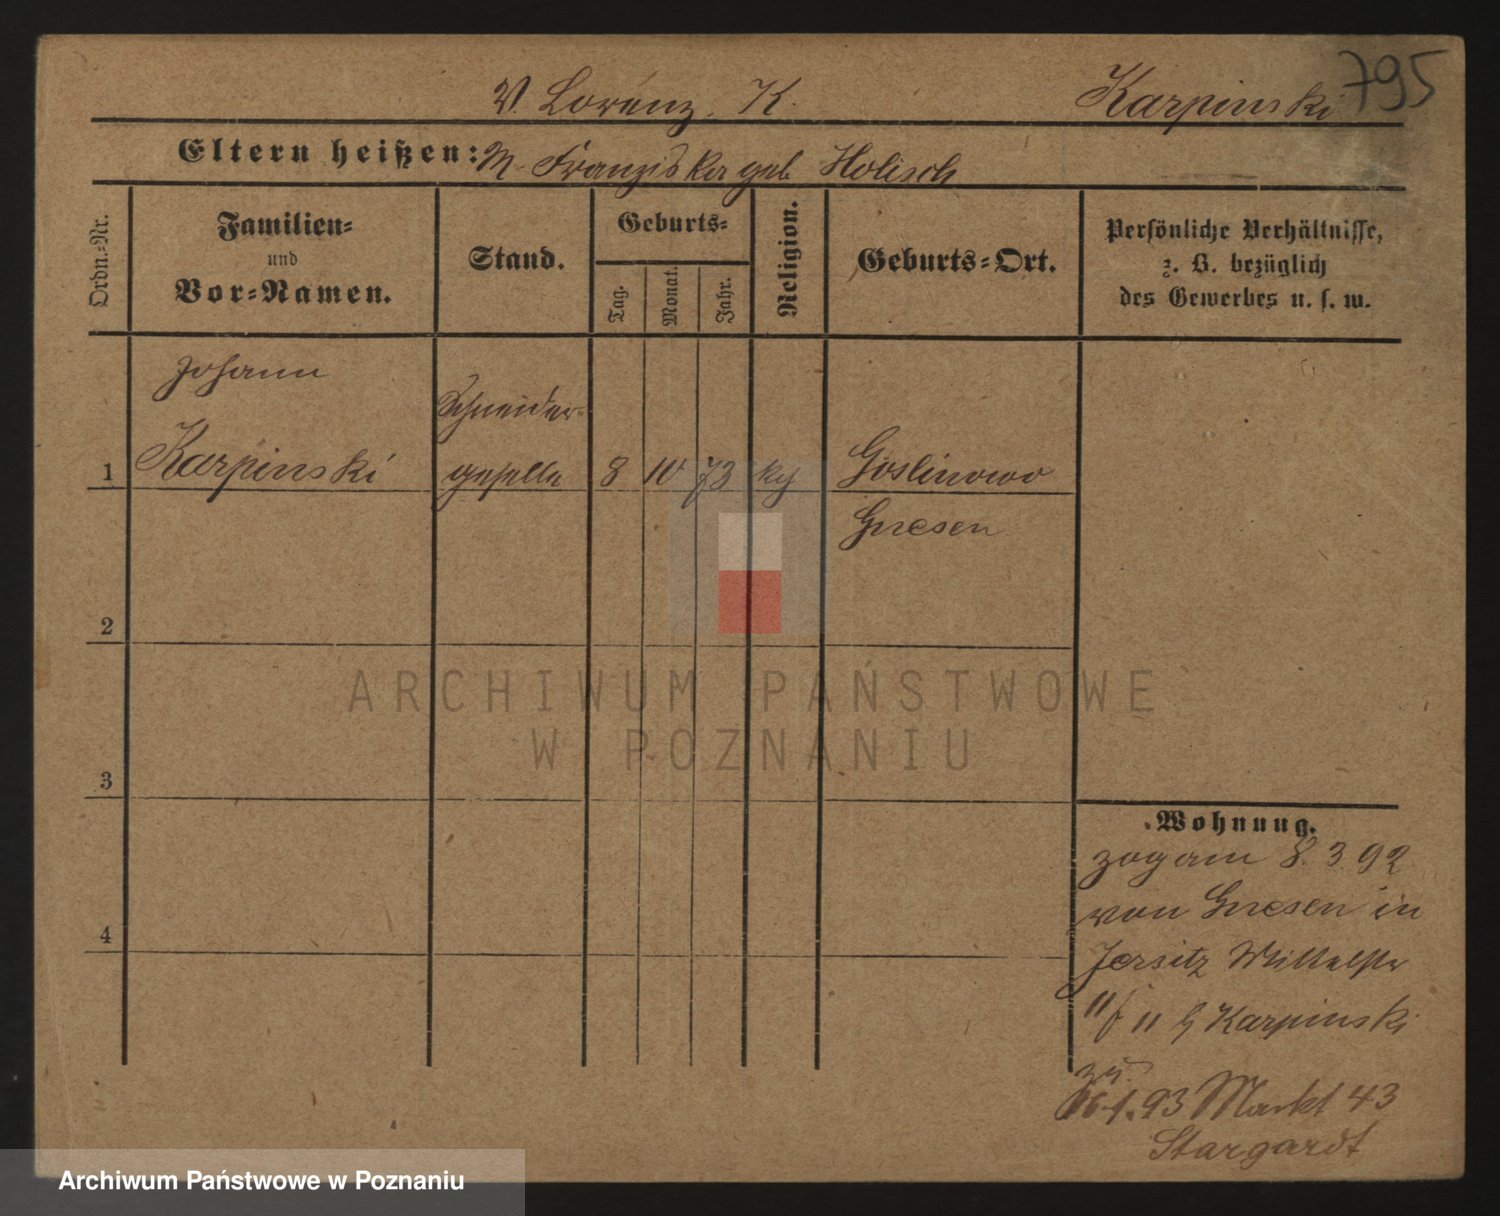 795
V Lorenz. K. Karpinski
Eltern heißen: M. Franziska geb. Holisch
Ordn.-Nr.
Familien-
und
Vor-Namen.
Stand.
Geburts-
Tag.
Monat.
Jahr.
Religion.
Geburts-Ort.
Persönliche Verhältnisse,
z. B. bezüglich
des Gewerbes u. s. w.
Johann
Schneider-
1 Karpinski geselle 8 10 73 Goslinowo
Gnesen
2
3
4
Wohnung.
zog am 8. 3. 92
von Gnesen in
Jersitz
11 Karpinski
93 Markt 43
Stargardt
ARCHIWUM PAŃSTWOWE
W POZNANIU
Archiwum Państwowe w Poznaniu